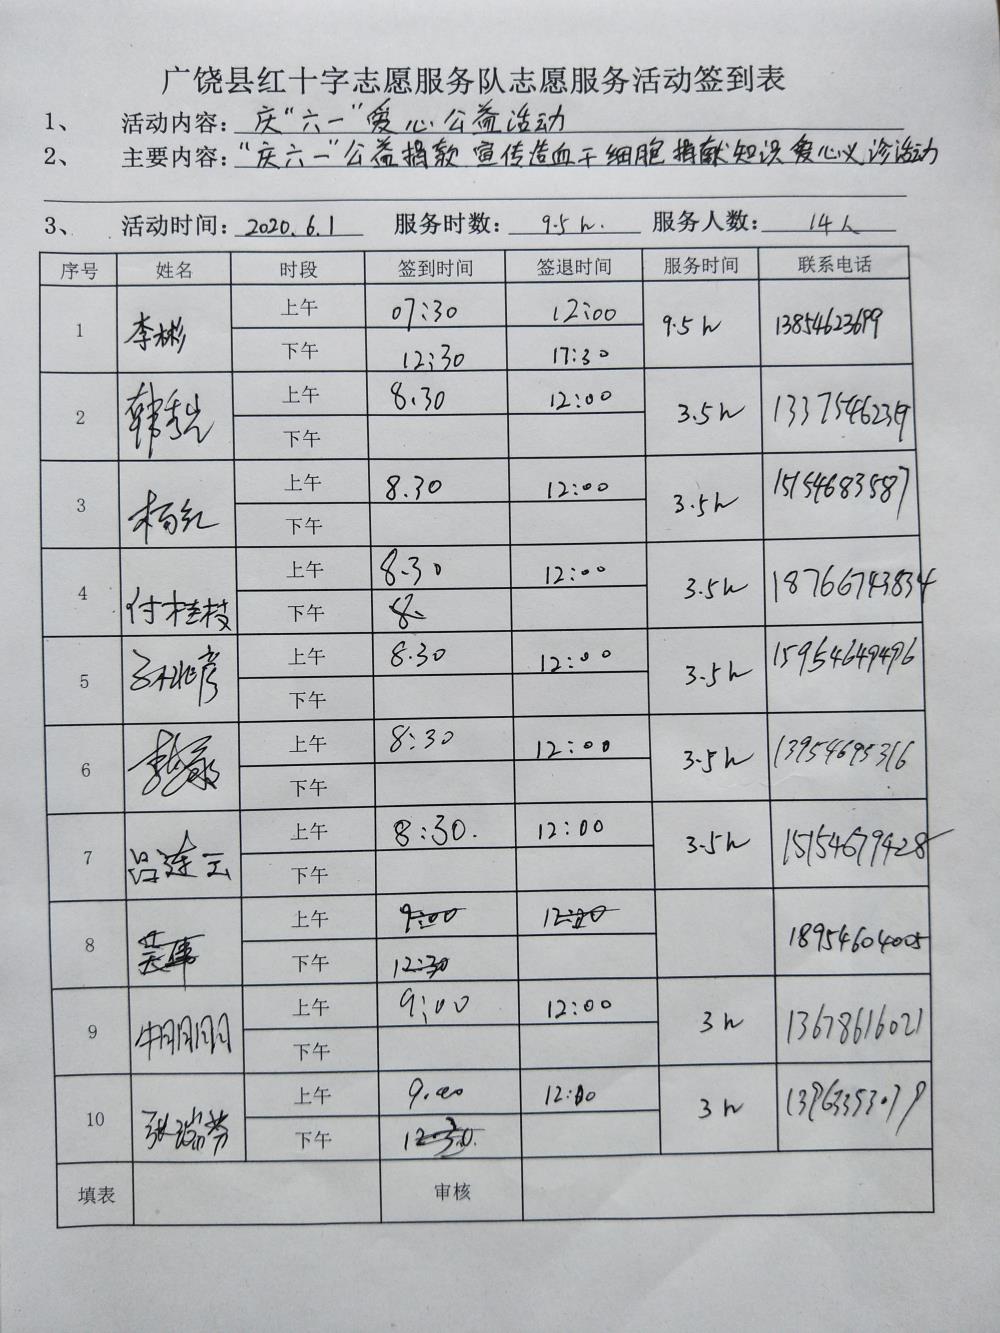 广饶县红十字志愿服务队志愿服务活动签到表
1、 活动内容: 庆“六一”爱心公益活动
2、 主要内容: “庆六一”公益捐款 宣传造血干细胞捐献知识 爱心义诊活动
3、 活动时间: 2020.6.1 服务时数: 9.5h. 服务人数: 14人
序号 姓名 时段 签到时间 签退时间 服务时间 联系电话
1 李彬 上午 07:30 12:00 9.5h 13854623699
下午 12:30 17:30
2 上午 8.30 12:00 3.5h
下午
3 杨红 上午 8.30 12:00 3.5h 15154683587
下午
4 付桂枝 上午 8.30 12:00 3.5h 18766743834
下午 8.
5 上午 8.30 12:00 3.5h 15954649496
下午
6 上午 8:30 12:00 3.5h 13954695316
下午
7 吕连云 上午 8:30. 12:00 3.5h 15154679428
下午
8 上午 9:00 12:00 18954604005
下午 12:30
9 牛明明 上午 9:00 12:00 3h 13678616021
下午
10 张瑞芳 上午 9.00 12:00 3h 13963353079
下午 12.30.
填表 审核